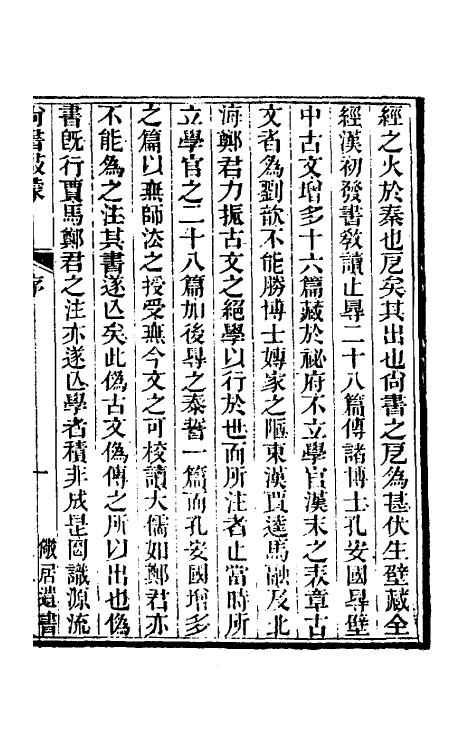 經之火於秦也戹矣其出也尙書之戹為甚伏生壁藏全
經漢初發書敎讀止㝵二十八篇傳諸博士孔安國㝵壁
中古文增多十六篇藏於祕府不立學官漢末之表章古
文者為劉歆不能勝博士專家之陋東漢賈逵馬融及北
海鄭君力振古文之絕學以行於世而所注者止當時所
立學官之二十八篇加後㝵之泰誓一篇而孔安國增多
之篇以無師法之授受無今文之可校讀大儒如鄭君亦
不能為之注其書遂亾矣此偽古文偽傳之所以出也偽
書旣行賈馬鄭君之注亦遂亾學者積非成是罔識源流
尙書啟幪
序
一
儆居遺書